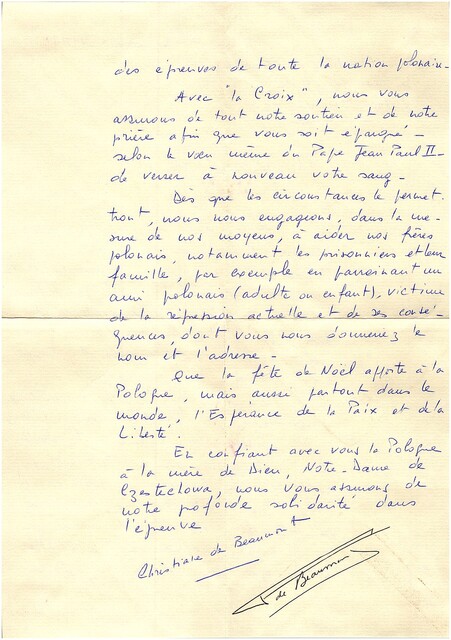 des épreuves de toute la nation polonaise -
Avec "la Croix", nous vous
assurons de tout notre soutien et de notre
prière afin que vous soit épargné -
selon le vœu même du Pape Jean Paul II -
de verser à nouveau votre sang -
Dès que les circonstances le permet.
tront, nous nous engageons, dans la me-
sure de nos moyens, à aider nos frères
polonais, notamment les prisonniers et leur
famille, par exemple en parrainant un
ami polonais (adulte ou enfant), victime
de la répression actuelle et de ses consé-
quences, dont vous nous donnerez le
nom et l'adresse -
Que la fête de Noël apporte à la
Pologne, mais aussi partout dans le
monde, l'Espérance de la Paix et de la
Liberté.
En confiant avec vous la Pologne
à la mère de Dieu, Notre-Dame de
Czestechowa, nous vous assurons de
notre profonde solidarité dans
l'épreuve
Christiane de Beaumont
de Beaumont